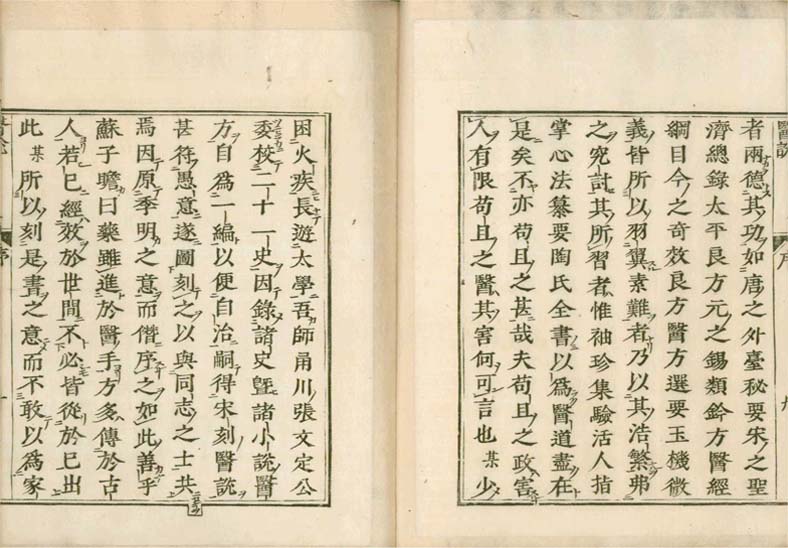 醫說
序
者兩德其功如唐之外臺秘要宋之聖
濟總錄太平良方元之錫類鈐方醫經
綱目今之奇效良方醫方選要玉機微
義皆所以羽翼素難者乃以其浩繁弗
之究討其所習者惟袖珍集驗活人指
掌心法纂要陶氏全書以爲醫道盡在
是矣不亦苟且之甚哉夫苟且之政害
人有限苟且之醫其害何可言也某少
困火疾長遊太學吾師甬川張文定公
委校二十一史因錄諸史曁諸小說醫
方自爲一編以便自治嗣得宋刻醫說
甚符愚意遂圖刻之以與同志之士共
焉因原季明之意而僭序之如此善乎
蘇子瞻曰藥雖進於醫手方多傳於古
人若已經效於世間不必皆從於已出
此某所以刻是書之意而不敢以爲家